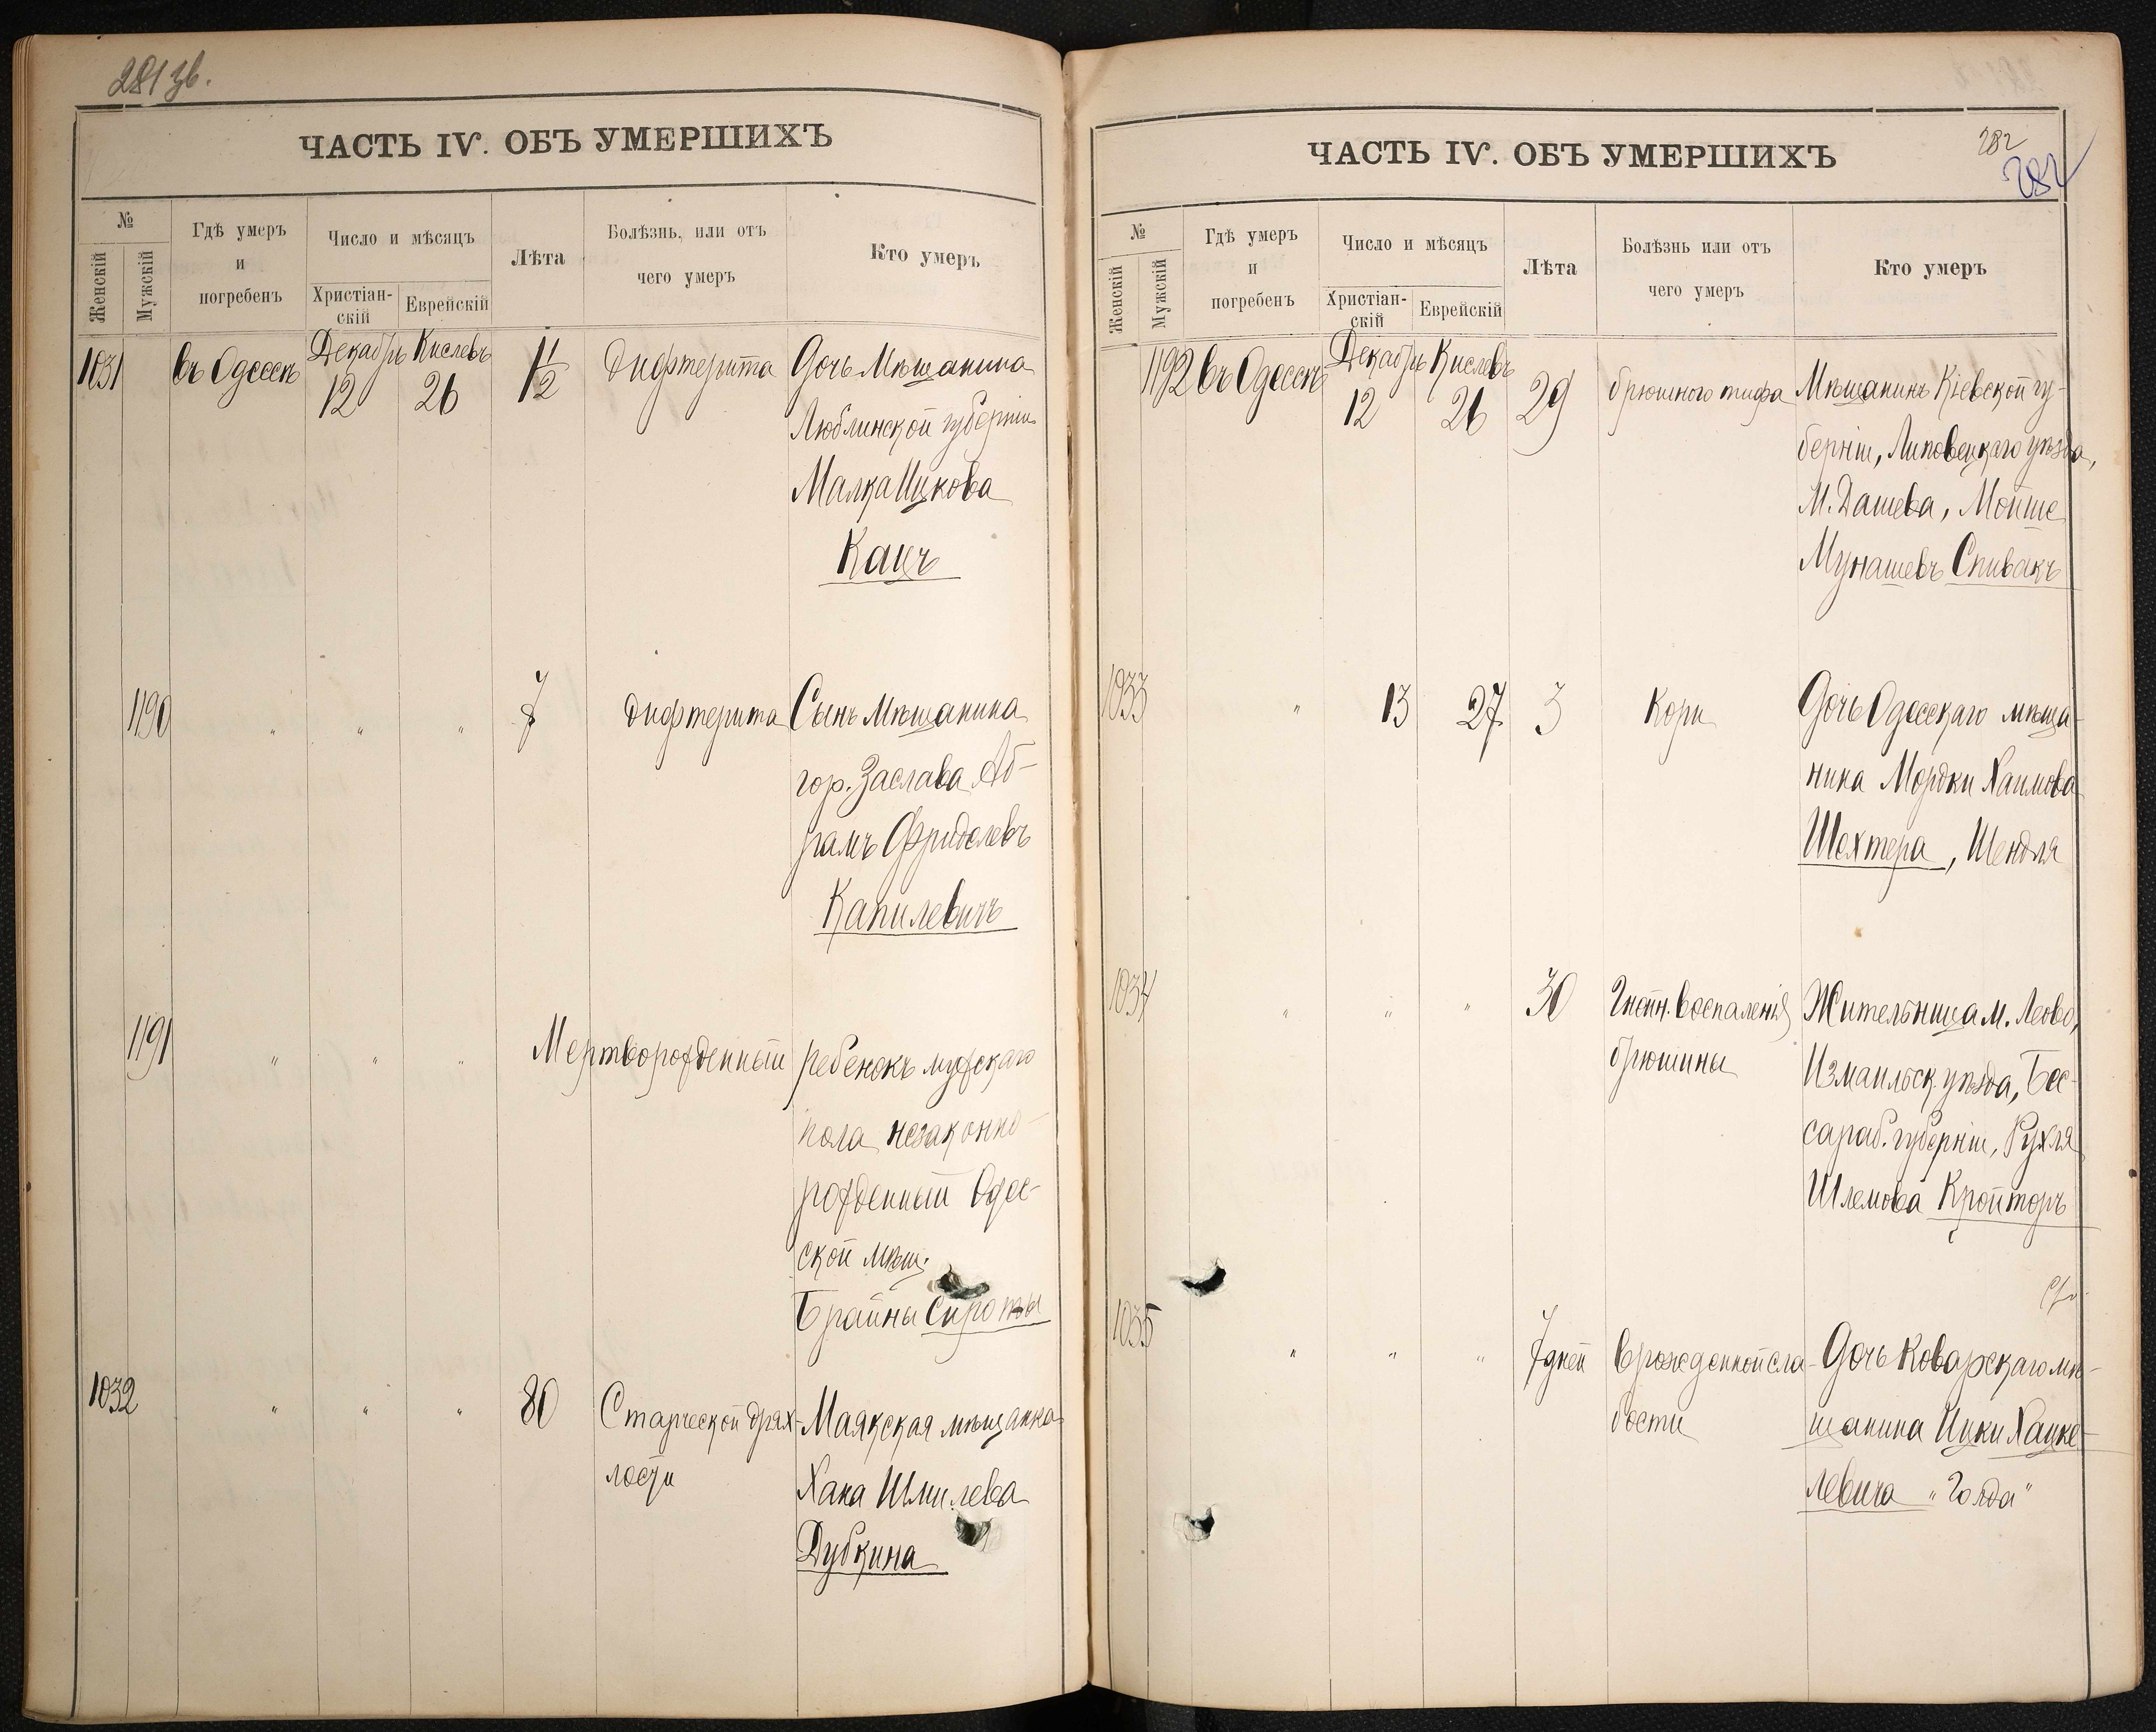 281 зв.
ЧАСТЬ IV. ОБЪ УМЕРШИХЪ
№
Женскій
Мужскій
Гдѣ умеръ
и
погребенъ
Число и мѣсяцъ
Христіан-
скій
Еврейскій
Лѣта
Болѣзнь, или отъ
чего умеръ
Кто умеръ
1031 въ Одессѣ Декабрь 12 Кислевъ 26 1 1/2 Дифтерита Дочь Мѣщанина
Люблинской губерніи
Малка Ицкова
Кацъ
1190 " " " 7 Дифтерита Сынъ Мѣщанина
гор. Заслава Аб-
рамъ Фриделевъ
Капилевичъ
1191 " " " Мертворожденный ребенокъ мужскаго
пола незаконно-
рожденный Одес-
ской мѣщ.
Брайны Сироты
1032 " " " 80 Старческой дрях- Маякская мѣщанка
лости Хана Шмилева
Дубкина
282
282
ЧАСТЬ IV. ОБЪ УМЕРШИХЪ
№
Женскій
Мужскій
Гдѣ умеръ
и
погребенъ
Число и мѣсяцъ
Христіан-
скій
Еврейскій
Лѣта
Болѣзнь или отъ
чего умеръ
Кто умеръ
1192 въ Одессѣ Декабрь 12 Кислевъ 26 29 брюшного тифа Мѣщанинъ Кіевской гу-
берніи, Липовецкаго уѣзда,
М. Дашева, Мойше
Мунашевъ Спивакъ
1033 " 13 27 3 Кори Дочь Одесскаго мѣща-
нина Мордки Хаимова
Шохтера, Шендля
1034 " " " 30 Гнойн. воспаленія Жительница м. Леово,
брюшины Измаильск. уѣзда, Бес-
сараб. губерніи, Рухля
Шлемова Кройторъ
1035 " " " 7 дней врожденной сла- Дочь Коварскаго мѣ-
бости щанина Ицки Хацке-
левича "Голда"